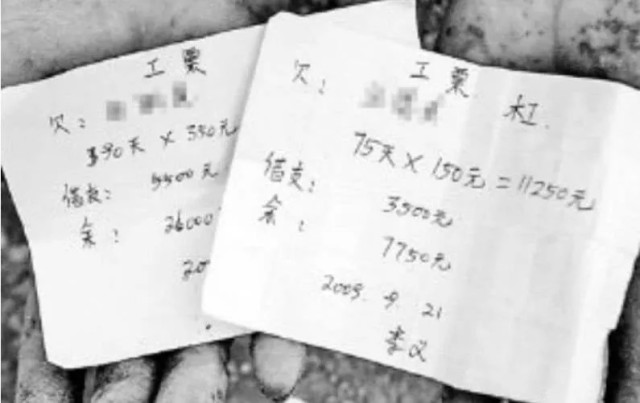 工票
欠:
90天 × 350元
借支: 5500元
余: 26000
20
工票 木工.
欠:
75天 × 150元 = 11250元
借支: 3500元
余: 7750元
2009. 9. 21
李义